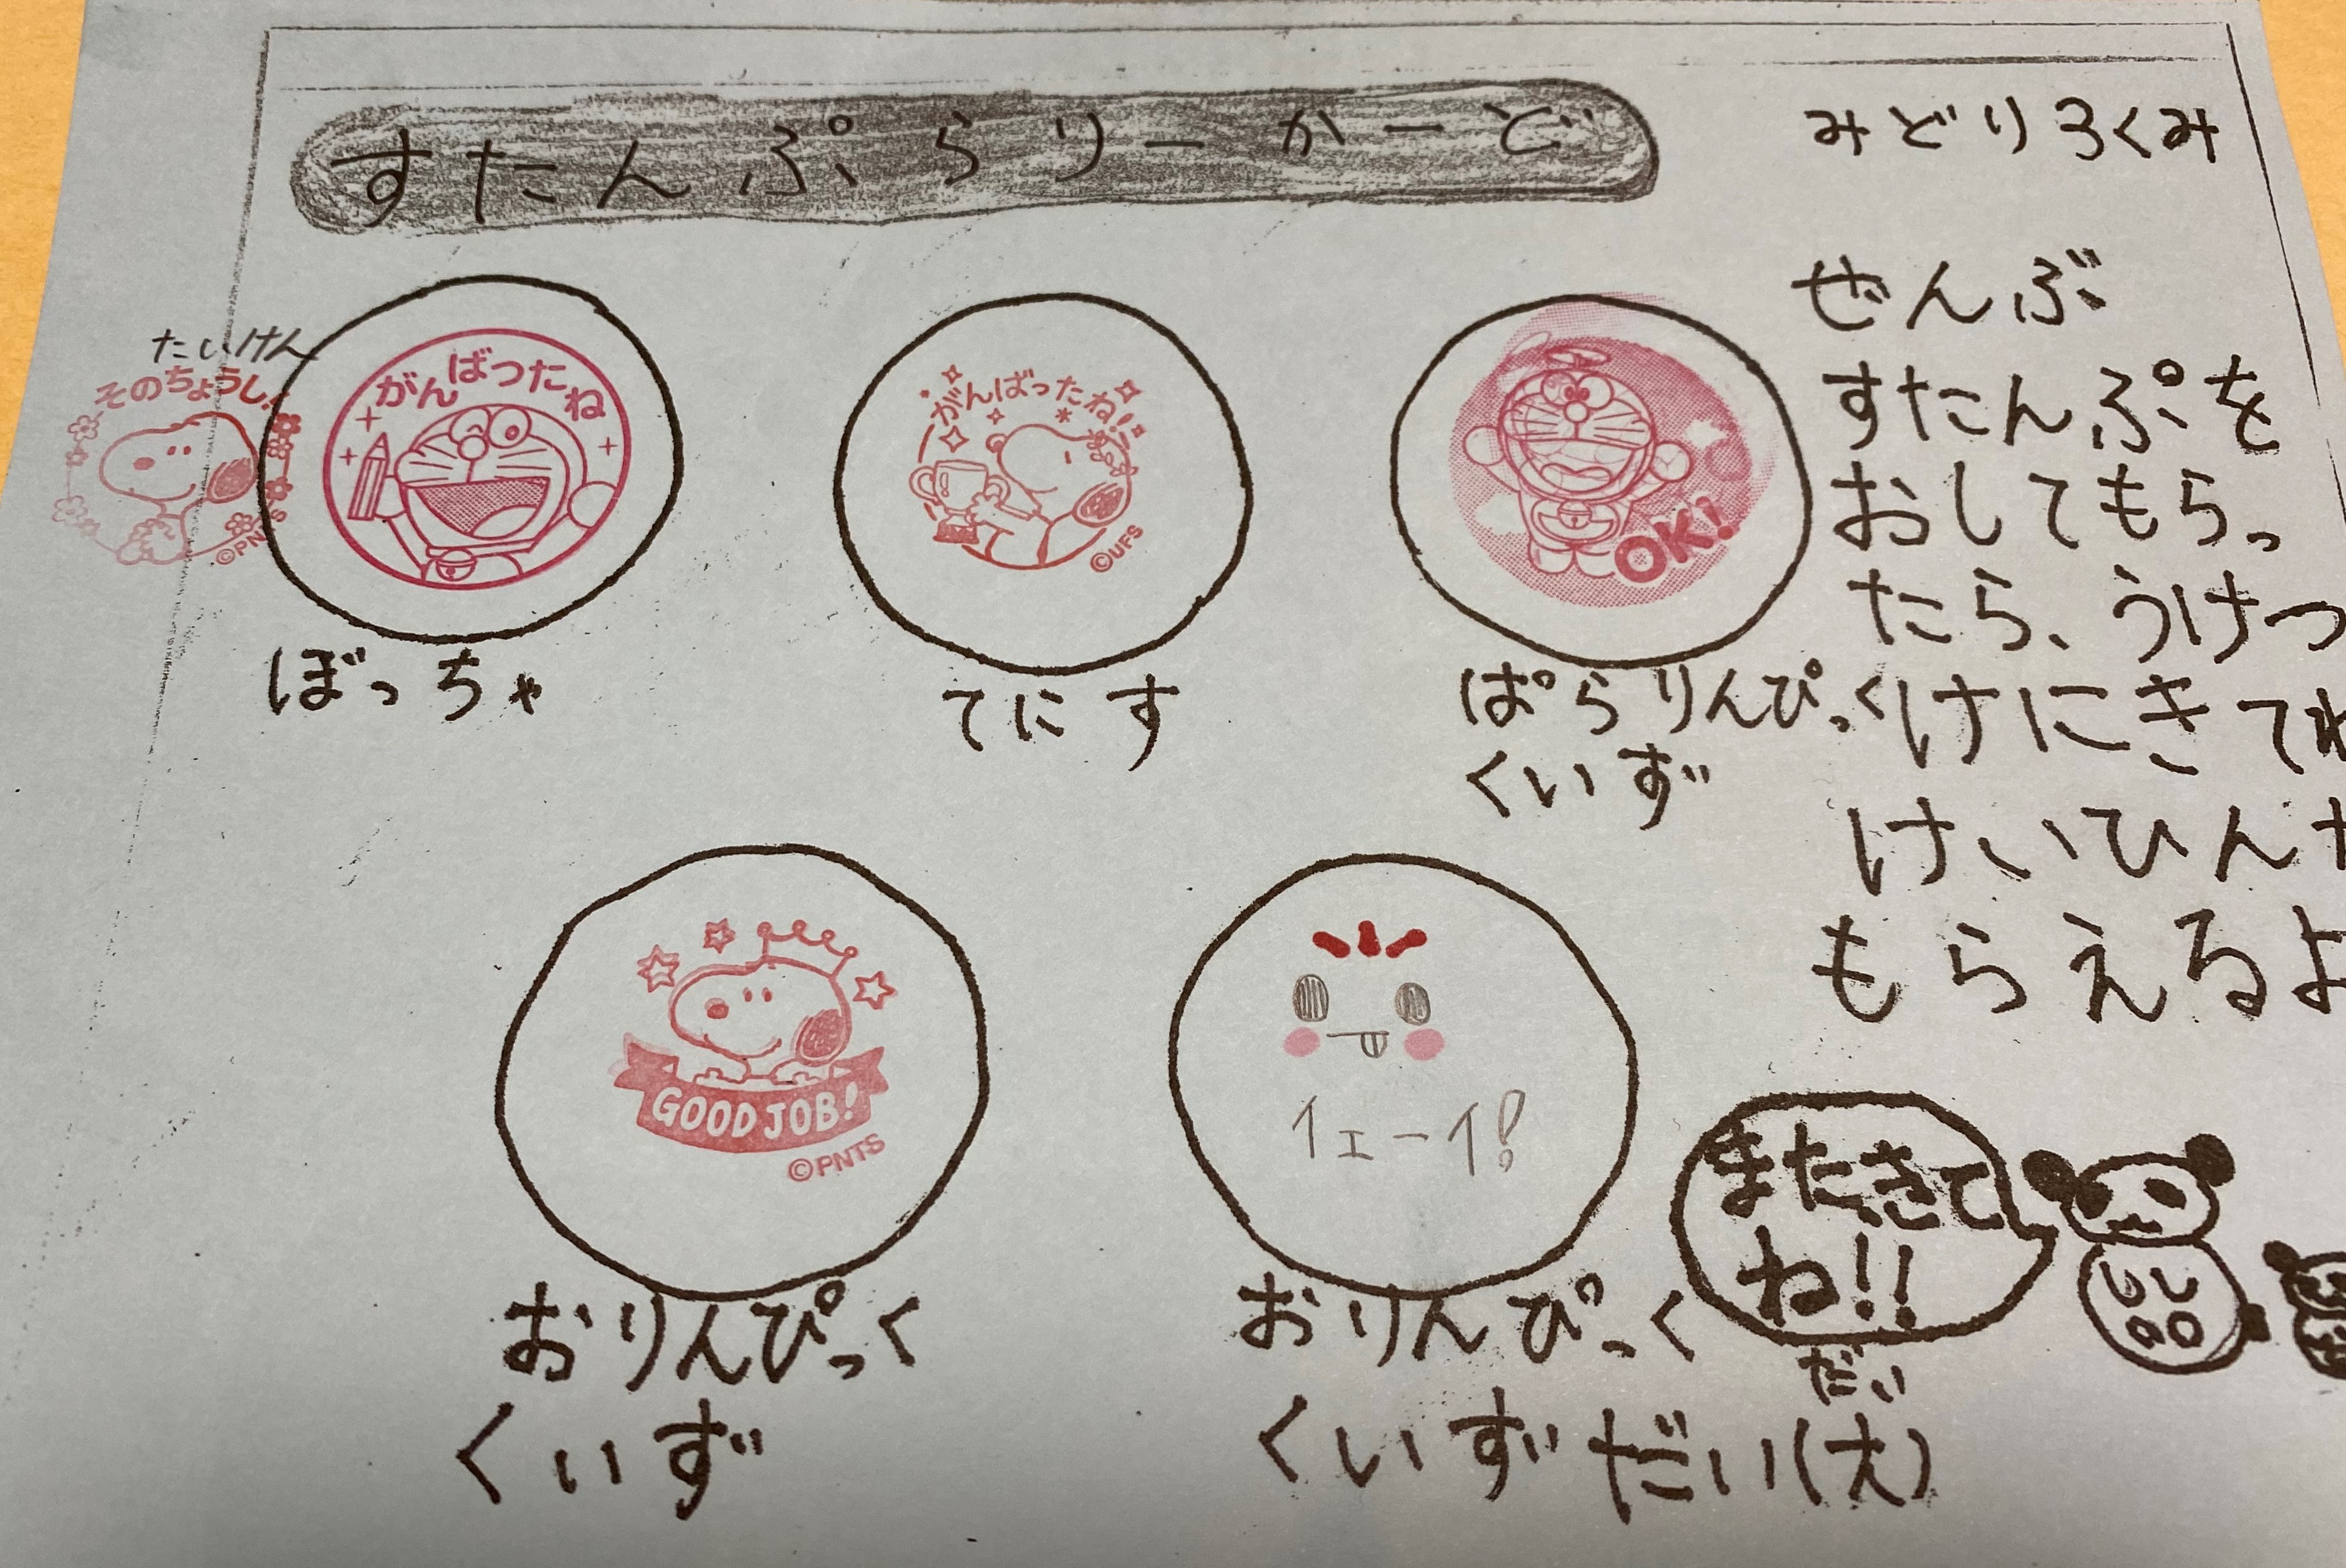 すたんぷらりーかーど
みどりろくみ
ぜんぶ
すたんぷを
おしてもらっ
たら、うけつ
けにきてね
けいひん
もらえるよ
たいけん
そのちょうし!
©PNTS
がんばったね
ぼっちゃ
がんばったね!
©UFS
てにす
OK!
ぱらりんぴっく
くいず
GOOD JOB!
©PNTS
おりんぴっく
くいず
イェーイ!
おりんぴっく
だい
くいずだい(大)
またきて
ね!!